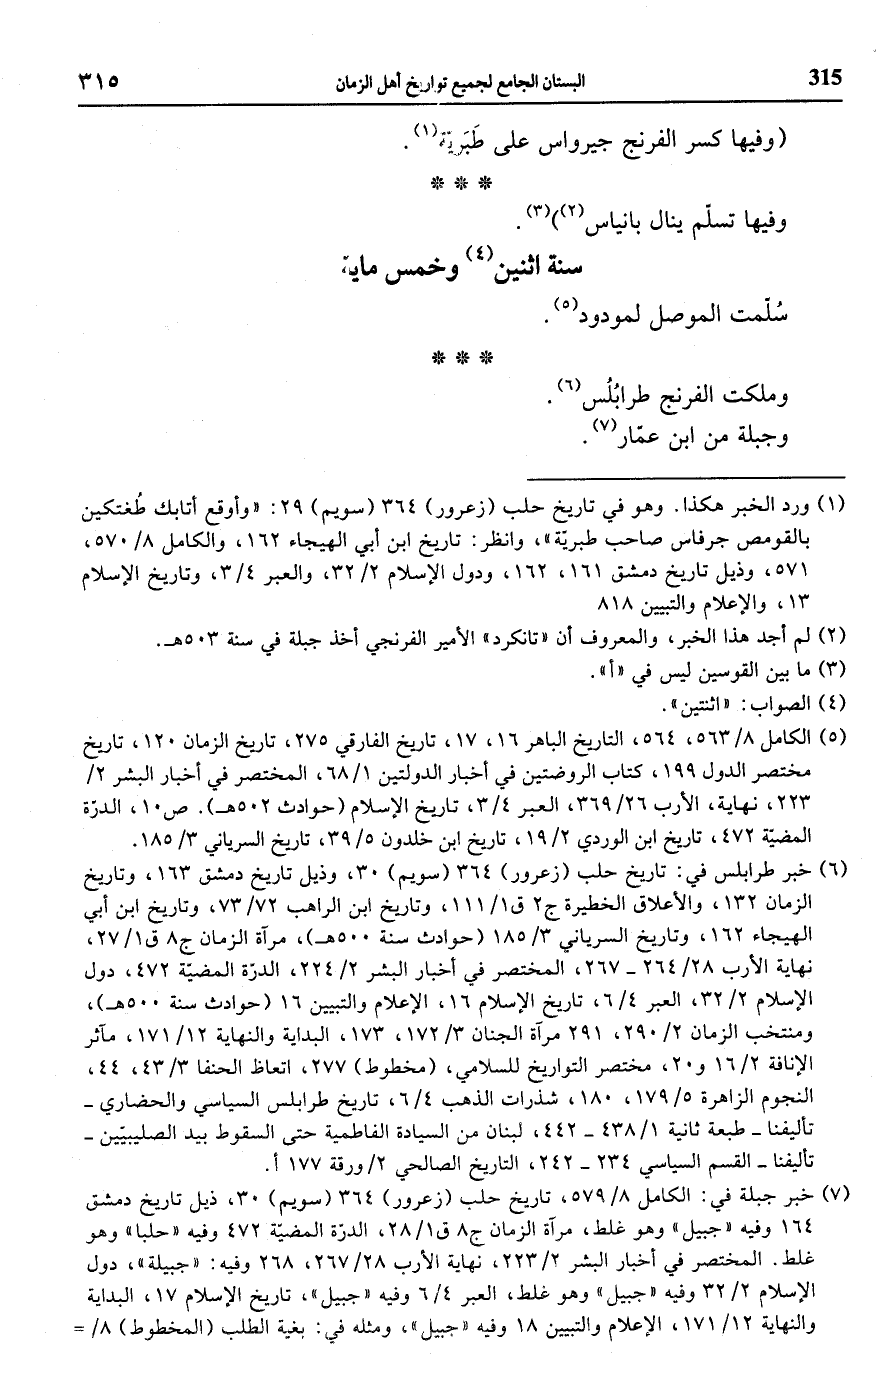 315 البستان الجامع لجميع تواريخ أهل الزمان ٣١٥
(وفيها كسر الفرنج جيرواس على طَبَريّة(١).
* * *
وفيها تسلّم ينال بانياس(٢))(٣).
سنة اثنين(٤) وخمس ماية
سُلّمت الموصل لمودود(٥).
* * *
وملكت الفرنج طرابُلُس(٦).
وجبلة من ابن عمّار(٧).
(١) ورد الخبر هكذا. وهو في تاريخ حلب (زعرور) ٣٦٤ (سويم) ٢٩: «وأوقع أتابك طُغتكين
بالقومص جرفاس صاحب طبريّة»، وانظر: تاريخ ابن أبي الهيجاء ١٦٢، والكامل ٨/ ٥٧٠،
٥٧١، وذيل تاريخ دمشق ١٦١، ١٦٢، ودول الإسلام ٢/ ٣٢، والعبر ٤/ ٣، وتاريخ الإسلام
١٣، والإعلام والتبيين ٨١٨
(٢) لم أجد هذا الخبر، والمعروف أن «تانكرد» الأمير الفرنجي أخذ جبلة في سنة ٥٠٣هـ.
(٣) ما بين القوسين ليس في «أ».
(٤) الصواب: «اثنتين».
(٥) الكامل ٨/ ٥٦٣، ٥٦٤، التاريخ الباهر ١٦، ١٧، تاريخ الفارقي ٢٧٥، تاريخ الزمان ١٢٠، تاريخ
مختصر الدول ١٩٩، كتاب الروضتين في أخبار الدولتين ١/ ٦٨، المختصر في أخبار البشر ٢/
٢٢٣، نهاية، الأرب ٢٦/ ٣٦٩، العبر ٤/ ٣، تاريخ الإسلام (حوادث ٥٠٢هـ). ص١٠، الدرّة
المضيّة ٤٧٢، تاريخ ابن الوردي ٢/ ١٩، تاريخ ابن خلدون ٥/ ٣٩، تاريخ السرياني ٣/ ١٨٥.
(٦) خبر طرابلس في: تاريخ حلب (زعرور) ٣٦٤ (سويم) ٣٠، وذيل تاريخ دمشق ١٦٣، وتاريخ
الزمان ١٣٢، والأعلاق الخطيرة ج٢ ق١/ ١١١، وتاريخ ابن الراهب ٧٢/ ٧٣، وتاريخ ابن أبي
الهيجاء ١٦٢، وتاريخ السرياني ٣/ ١٨٥ (حوادث سنة ٥٠٠هـ)، مرآة الزمان ج٨ ق١/ ٢٧،
نهاية الأرب ٢٨/ ٢٦٤ ـ ٢٦٧، المختصر في أخبار البشر ٢/ ٢٢٤، الدرّة المضيّة ٤٧٢، دول
الإسلام ٢/ ٣٢، العبر ٤/ ٦، تاريخ الإسلام ١٦، الإعلام والتبيين ١٦ (حوادث سنة ٥٠٠هـ)،
ومنتخب الزمان ٢/ ٢٩٠، ٢٩١ مرآة الجنان ٣/ ١٧٢، ١٧٣، البداية والنهاية ١٢/ ١٧١، مآثر
الإنافة ٢/ ١٦ و٢٠، مختصر التواريخ للسلامي، (مخطوط) ٢٧٧، اتعاظ الحنفا ٣/ ٤٣، ٤٤،
النجوم الزاهرة ٥/ ١٧٩، ١٨٠، شذرات الذهب ٤/ ٦، تاريخ طرابلس السياسي والحضاري ـ
تأليفنا ـ طبعة ثانية ١/ ٤٣٨ ـ ٤٤٢، لبنان من السيادة الفاطمية حتى السقوط بيد الصليبيّين ـ
تأليفنا ـ القسم السياسي ٢٣٤ ـ ٢٤٢، التاريخ الصالحي ٢/ ورقة ١٧٧ أ.
(٧) خبر جبلة في: الكامل ٨/ ٥٧٩، تاريخ حلب (زعرور) ٣٦٤ (سويم) ٣٠، ذيل تاريخ دمشق
١٦٤ وفيه «جبيل» وهو غلط، مرآة الزمان ج٨ ق١/ ٢٨، الدرّة المضيّة ٤٧٢ وفيه «حلبا» وهو
غلط. المختصر في أخبار البشر ٢/ ٢٢٣، نهاية الأرب ٢٨/ ٢٦٧، ٢٦٨ وفيه: «جبيلة»، دول
الإسلام ٢/ ٣٢ وفيه «جبيل» وهو غلط، العبر ٤/ ٦ وفيه «جبيل»، تاريخ الإسلام ١٧، البداية
والنهاية ١٢/ ١٧١، الإعلام والتبيين ١٨ وفيه «جبيل»، ومثله في: بغية الطلب (المخطوط) ٨/ =